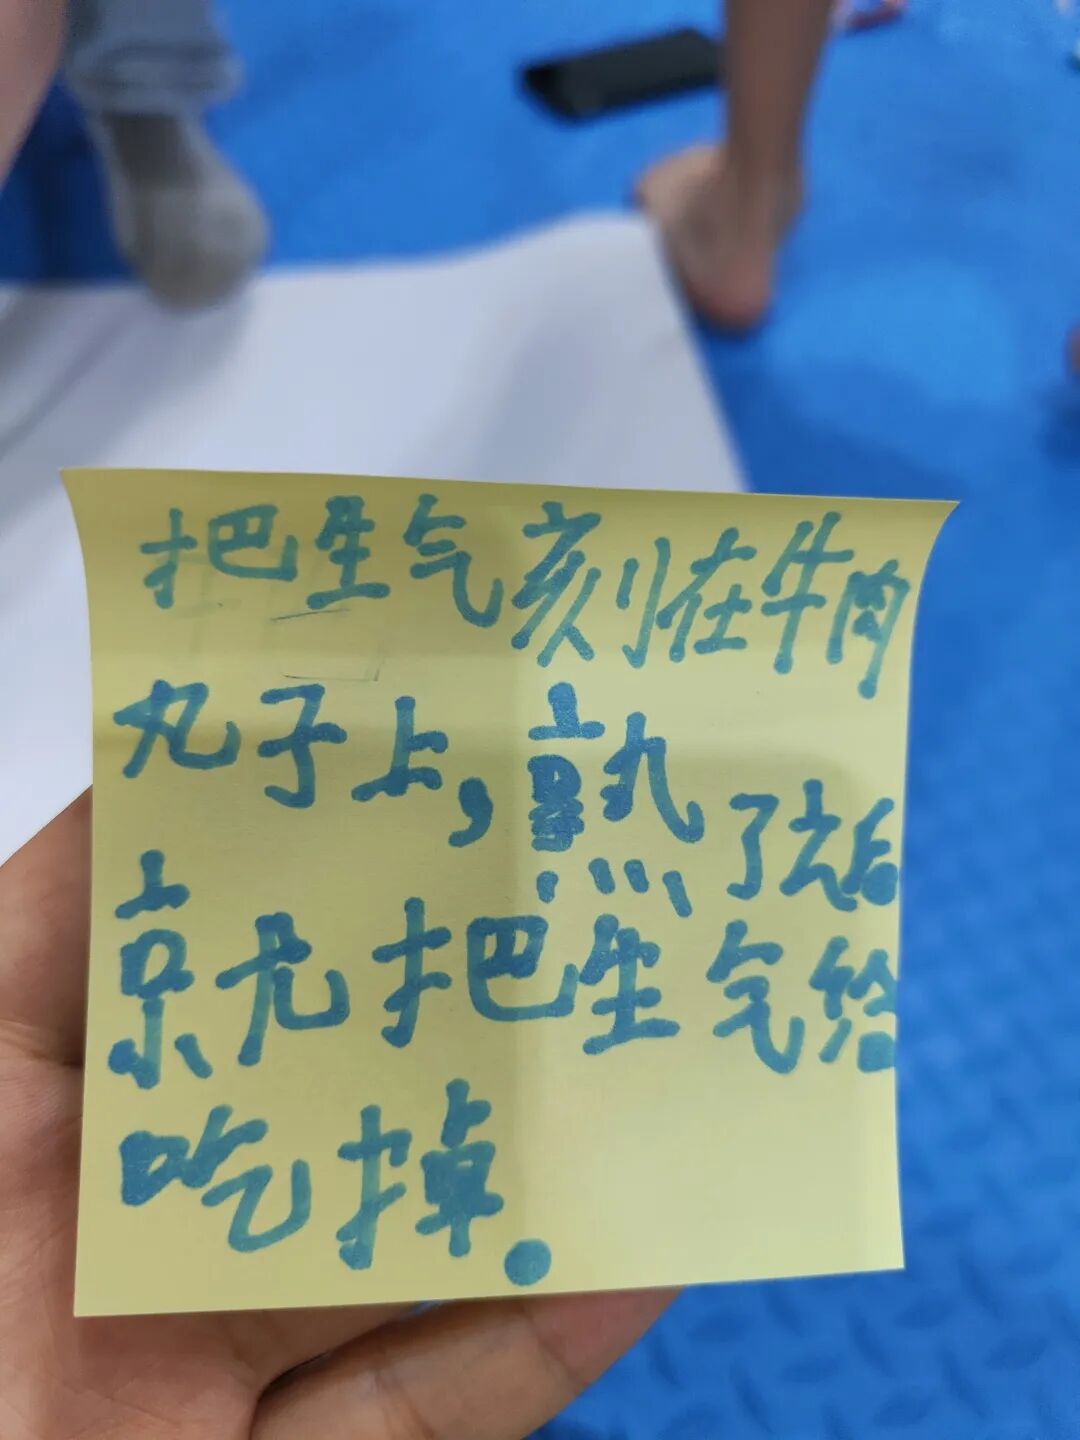 把生气刻在牛肉
丸子上，熟了之后
就把生气给
吃掉。